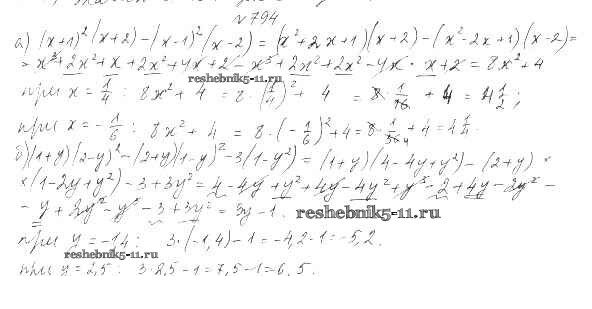 № 794
а) (x+1)²(x+2)-(x-1)²(x-2) = (x²+2x+1)(x+2)-(x²-2x+1)(x-2)=
= x³+2x²+x+2x²+4x+2-x³+2x²+2x²-4x-x+2=8x²+4
reshebnik5-11.ru
при x = 1/4 : 8x²+4 = 8·(1/4)²+4 = 8·1/16+4=4 1/2;
при x = -1/6 : 8x²+4 = 8·(-1/6)²+4=8·1/36+4=4
б)(1+y)(2-y)²-(2+y)(1-y)²-3(1-y²)=(1+y)(4-4y+y²)-(2+y)×
×(1-2y+y²)-3+3y²=4-4y+y²+4y-4y²+y³-2+4y-2y²-
-y+2y²-y³-3+3y²=3y-1.
reshebnik5-11.ru
при y = -1,4 : 3·(-1,4)-1=-4,2-1=-5,2.
reshebnik5-11.ru
при y = 2,5 : 3·2,5-1=7,5-1=6,5.